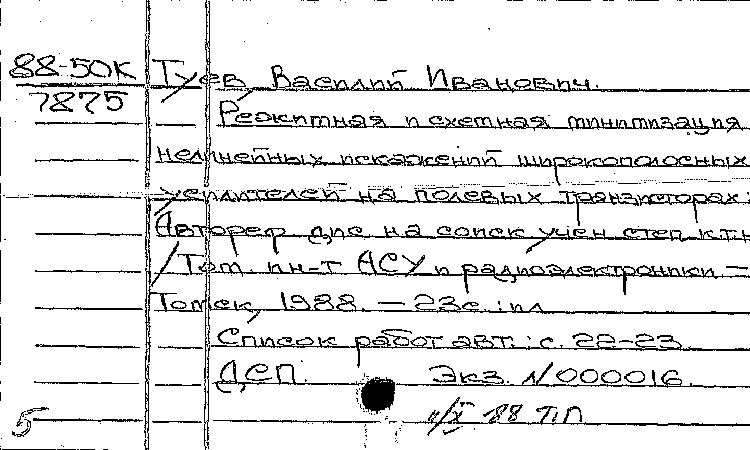 88-50К Гуев Василий Иванович.
7875
Режктная и схетная минимизация
нелинейных искажений широкополосных
усилителей на полевых транзисторах:
Автореф дис. на соиск учен степ к.т.н
/Том. ин-т АСУ и радиоэлектроники –
Томск, 1988. – 23с.:ил
Список работ авт.: с. 22-23.
ДСП. Экз. N/000016.
5